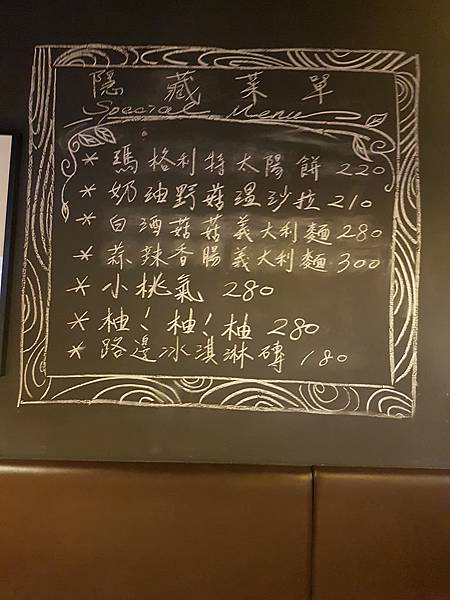 隱藏菜單
Special Menu
* 瑪格利特太陽餅 220
* 奶油野菇溫沙拉 210
* 白酒菇菇義大利麵 280
* 蒜辣香腸義大利麵 300
* 小桃氣 280
* 柚!柚!柚 280
* 路邊冰淇淋磚 180